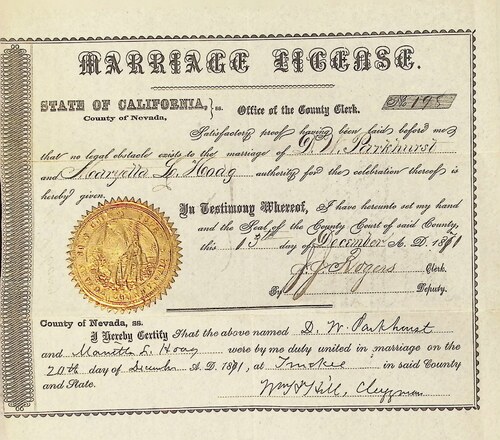 MARRIAGE LICENSE.
STATE OF CALIFORNIA, } ss.
County of Nevada,
Office of the County Clerk.
No 195
Satisfactory proof having been laid before me
that no legal obstacle exists to the marriage of D. W. Parkhurst
and L. Hoag authority for the celebration thereof is
hereby given.
In Testimony Whereof, I have hereunto set my hand
and the Seal of the County Court of said County,
this 15 day of December A. D. 1871
J. J. Rogers Clerk.
By Deputy.
County of Nevada, ss.
I Hereby Certify That the above named D. W. Parkhurst
and L. Hoag were by me duly united in marriage on the
20th day of December A. D. 1871, at Truckee in said County
and State.
Hill, Clergyman